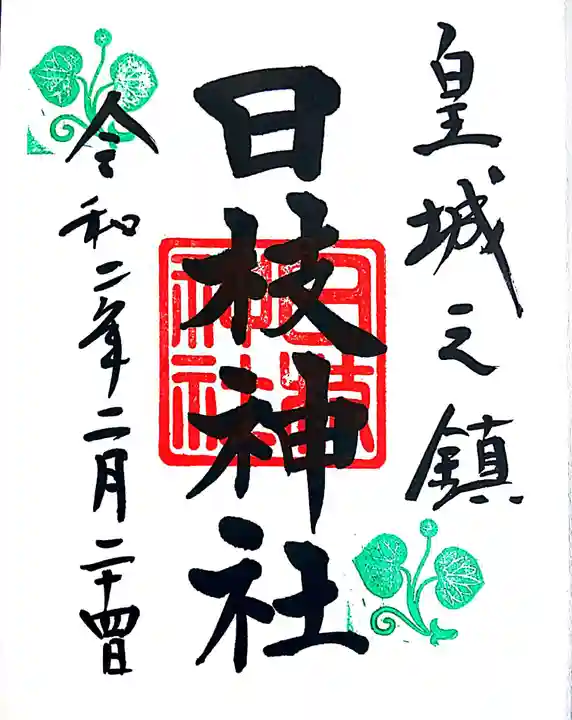 皇城之鎮
日枝神社
日枝神社
令和二年二月二十四日